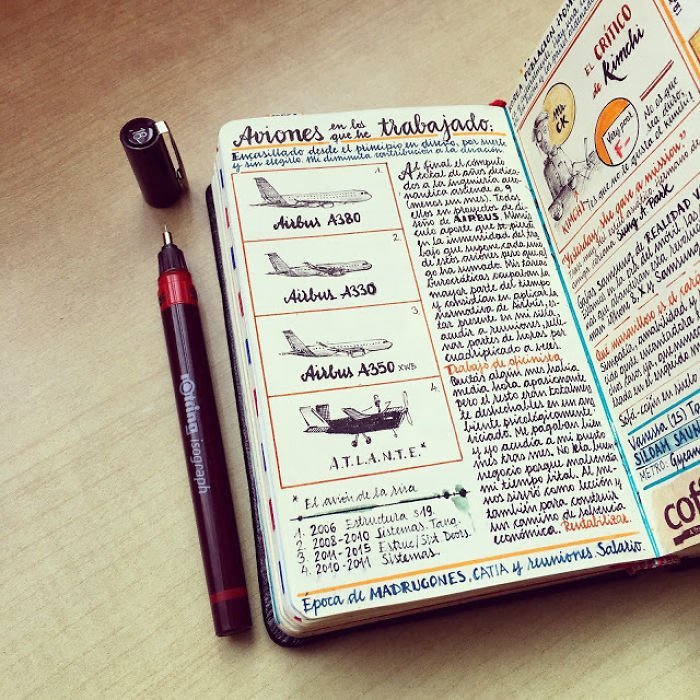 Aviones en los que he trabajado:
Encasillado desde el principio en diseño, por suerte
y sin elegirlo. Mi diminuta contribución a la aviación.
1.
Airbus A380
2.
Airbus A330
3.
Airbus A350 XWB
4.
A.T.L.A.N.T.E.*
* El avión de la risa
1. 2006 Estructura S19.
2. 2008-2010 Sistemas Tanq.
3. 2011-2015 Estruc/Sist Doors.
4. 2010-2011 Sistemas
Al final el cómputo
total de años dedica-
dos a la ingeniería aero-
náutica asciende a 9
(menos un mes). Todos
ellos en proyectos de di-
seño de AIRBUS. Minús-
culo aporte que se pierde
en la inmensidad del tra-
bajo que supone cada uno
de estos aviones pero que al-
go ha sumado. Mis tareas
burocráticas ocupaban la
mayor parte del tiempo
y consistían en aplicar la
normativa de Airbus, es-
tar presente en mi silla,
acudir a reuniones, relle-
nar partes de horas por
cuadruplicado a veces.
Trabajo de oficinista.
media hora apasionante
Pero el resto eran totalmen-
te desechables en un am-
biente psicológicamente
viciado. Me pagaban bien
y yo acudía a mi puesto
mes tras mes. No era buen
negocio porque malvendía
mi tiempo vital. Al me-
nos sirvió como lección y
también para construir
un camino de solvencia
económica. Rentabilizar.
Época de MADRUGONES, CATIA y reuniones. Salario.
POBLACIÓN
EL CRÍTICO
de Kimchi
MU-CK
Very poor
F
KIMCHI
"Yesterday, she gave a mission"
Sung-A Park
REALIDAD
Samsung
Qué maravilloso es el car
Simpatía, amabilidad
Sola-cojín en suelo
Vanesa (25)
SILOAM SAUN
METRO:
COFF
rotring isograph